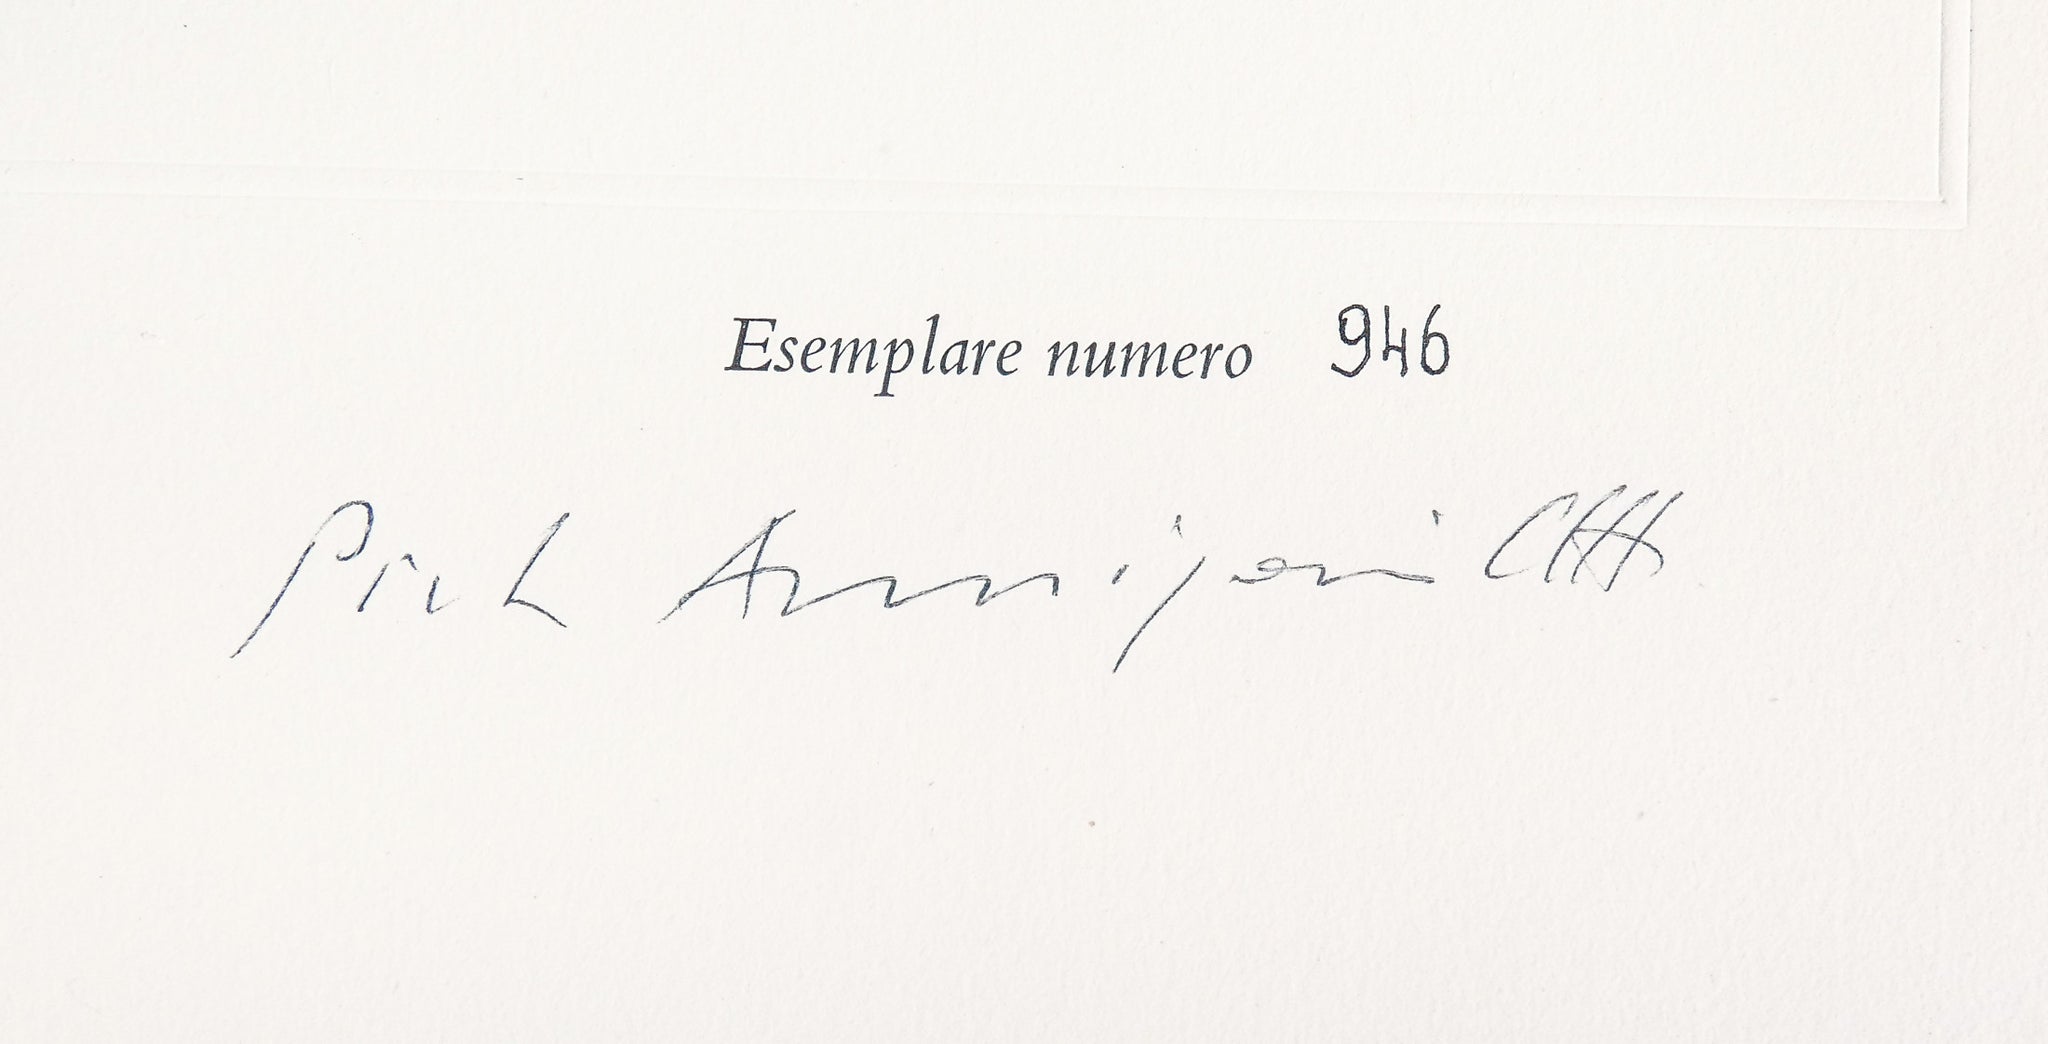 Esemplare numero 946
Pietro Annigoni